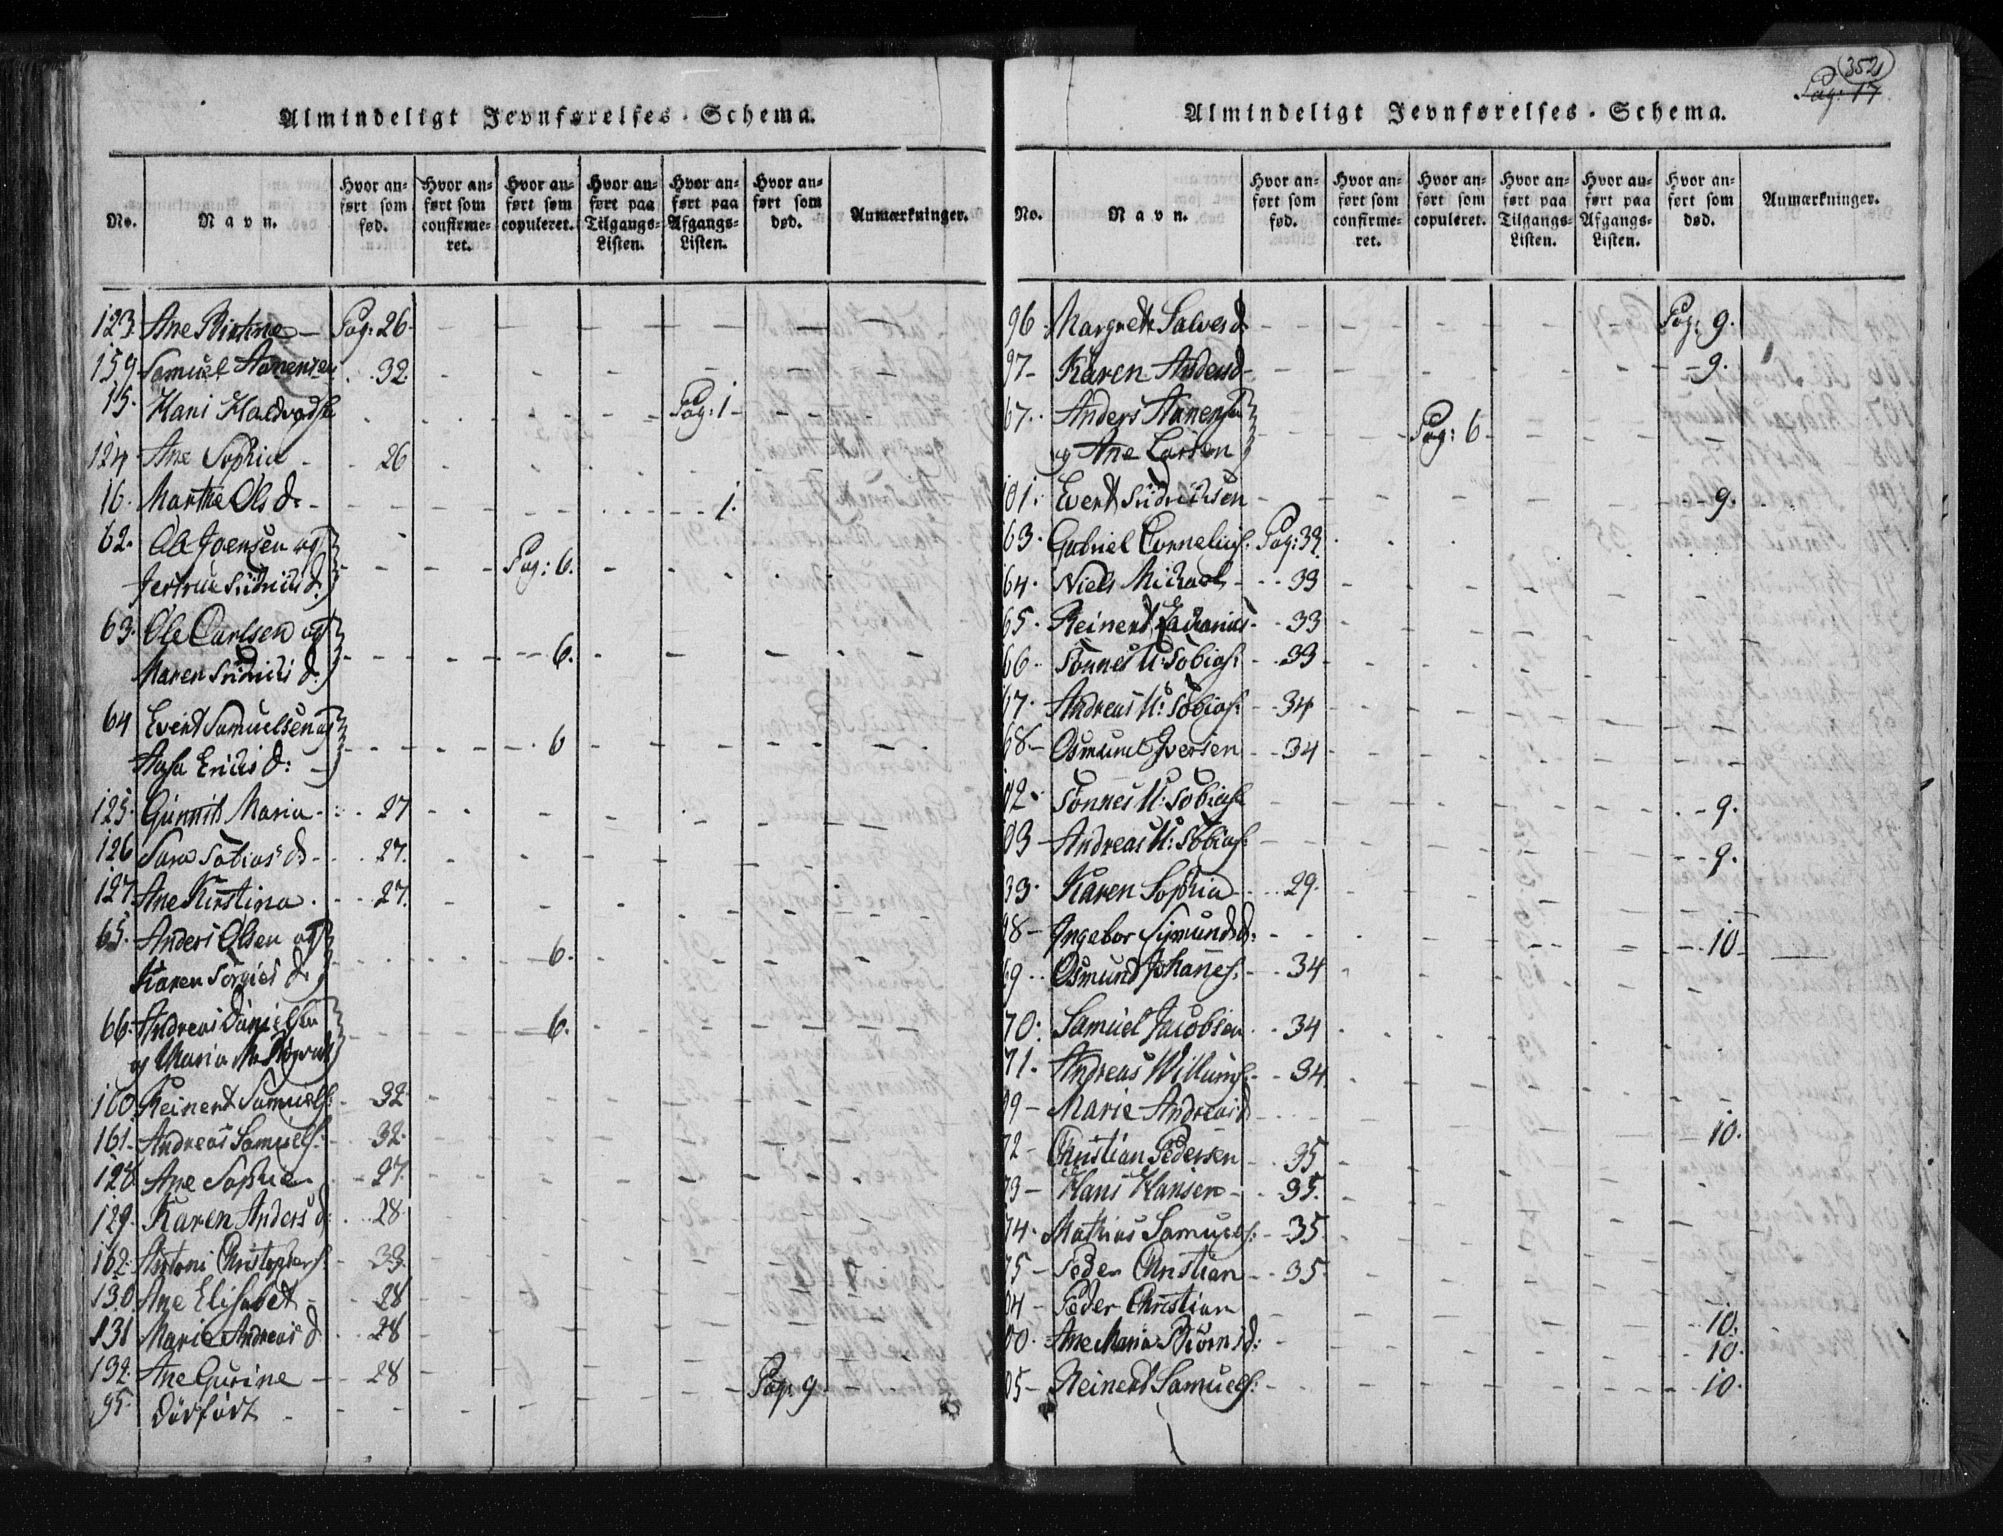 (352)
Pag: 17
Almindeligt Jevnførelses-Schema.
No. Navn. Hvor anført som fød. Hvor anført som confirmeret. Hvor anført som copuleret. Hvor anført paa Tilgangs-Listen. Hvor anført paa Afgangs-Listen. Hvor anført som død. Anmærkninger.
123. Ane — Pag: 26
159. Samuel Aanensen 32
15. Hans Halvords Pag: 1
124 Ane Sophia 26
16. Marthe Ols d. 1.
62. Ole Joensen og
Jertrue Fridrichs d. Pag: 6.
63. Ole Carlsen og
Maren Fridrichs d. 6.
64 Evert Samuelsen og
Aasa Erichs d: 6
125. Gunnild Maria 27
126 Sara Tobias d 27.
127. Ane Kirstina 27.
65. Anders Olsen og
Karen Torgies d. 6.
66. Andreas Danielsen
og Maria M. 6.
160. Reinert Samuels: 32
161. Andreas Samuels: 32.
128 Ane Sophia 27.
129. Karen Anders d: 28
162. Antoni Christophers: 33.
130. Ane Elisabet 28
131 Marie Andreas d 28
132. Ane Gurine 28
95. Dødfødt Pag. 9
Almindeligt Jevnførelses-Schema.
No. Navn. Hvor anført som fød. Hvor anført som confirmeret. Hvor anført som copuleret. Hvor anført paa Tilgangs-Listen. Hvor anført paa Afgangs-Listen. Hvor anført som død. Anmærkninger.
96. Margrete Salves d. Pag: 9.
97 Karen Anders d 9.
67. Anders Aanensen
og Ane Larsen Pag: 6
101. Evert Fridrichsen 9.
63. Gabriel Cornelius: Pag: 33.
64. Niels Michael 33
65. Reinert Zacharias 33
66. Tønnes U: Tobias: 33
67. Andreas U: Tobias: 34
68 Osmund Iversen 34
02. Tønnes U: Tobias: 9.
03 Andreas U: Tobias: 9.
33. Karen Sophia 29.
98 Ingebor Simunds d: 10
69 Osmund Johannes: 34
70. Samuel Jacobsen 34
71. Andreas Willums: 34
99 Marie Andreas d 10.
72 Christian Pedersen 35
73 Hans Hansen 35.
74. Mathias Samuels: 35.
75 Peder Christian 35.
04 Peder Christian 10.
00. Ane Maria Biørns d: 10.
05 Reinert Samuels: 10.